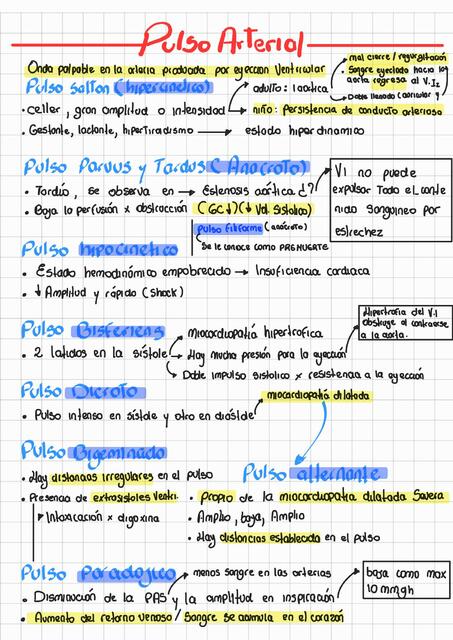 Pulso Arterial
Onda palpable en la arteria producida por eyeccion Ventricular
mal cierre / regurgitación
Sangre eyectada hacia la aorta regresa al V.Iz
Doble llenado (auricular y
Pulso Salton (hipercinetico)
adulto: laortica
· celler, gran amplitud o intensidad
niño: Persistencia de conducto arterioso
· Gestante, lactante, hipertiroidismo → estado hiperdinamico
Pulso Parvus y Tardus (Anacroto)
· Tardío, se observa en → Estenosis aórtica
· Baja la perfusión x obstrucción (GC↓) (↓ Vol. Sistolico)
VI no puede
expulsar Todo el conte
nido Sanguineo por
estrechez
pulso filiforme (anacroto)
Se le conoce como PREMUERTE
Pulso hipocinetico
· Estado hemodinámico empobrecido → Insuficiencia cardiaca
· ↓ Amplitud y rápido (Shock)
Hipertrofia del V.I
obstruye al contraerse
a la aorta.
Pulso Bisferiens
miocardiopatia hipertrofica
· 2 latidos en la sístole
Hay mucha presión para la eyección
Doble impulso sistolico x resistencia a la eyección
Pulso Dicroto
miocardiopatía dilatada
· Pulso intenso en sístole y otro en diástole
Pulso Bigeminado
· Hay distancias irregulares en el pulso
· Presencia de extrasistoles Ventri.
Intoxicación x digoxina
Pulso alternante
· Propio de la miocardiopatia dilatada Severa
· Amplio, baja, Amplio
· Hay distancias establecida en el pulso
Pulso Paradojico
menos sangre en las arterias
· Disminución de la PAS y la amplitud en inspiración
baja como max
10 mmgh
· Aumento del retorno venoso / Sangre se acumula en el corazón